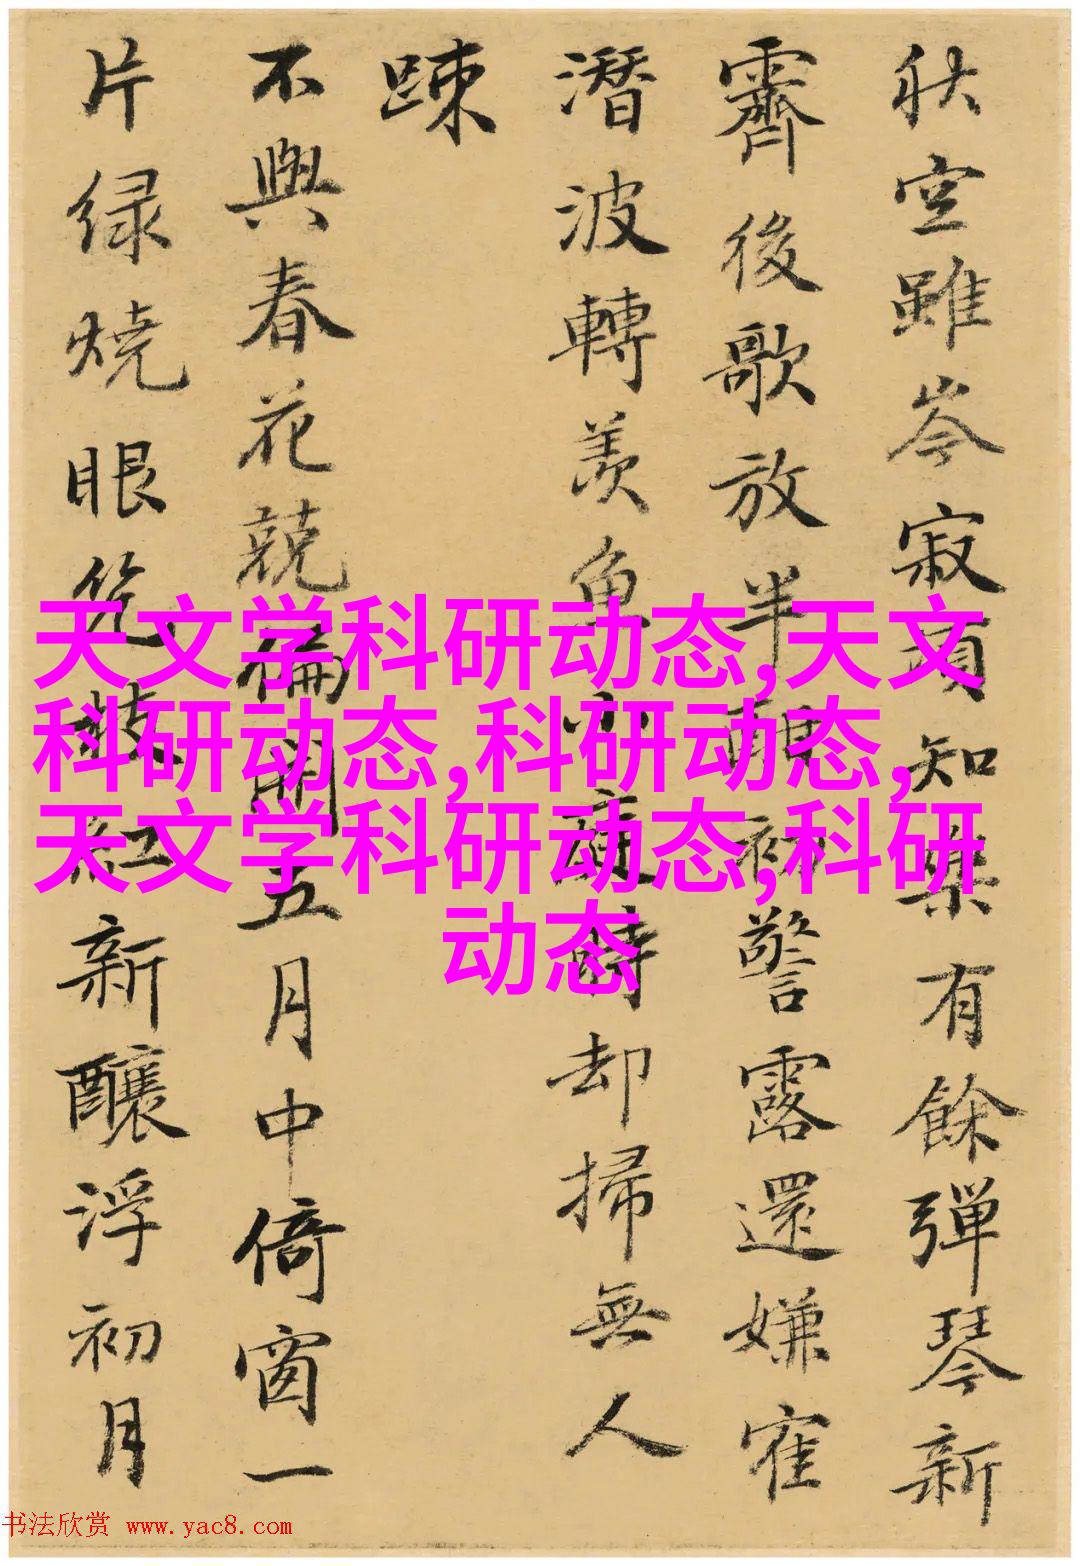 秋空雖岑寂知樂有餘彈琴新
霽後歌放半酣初警露還嫌寉
潛波轉羨魚小庭時却掃無人
踈
不與春花競偏開五月中倚窗一
片緑燒眼枝紅新釀浮初月
天文学科研动态,天文
科研动态,科研动态,
天文学科研动态,科研
动态
书法欣赏 www.yac8.com